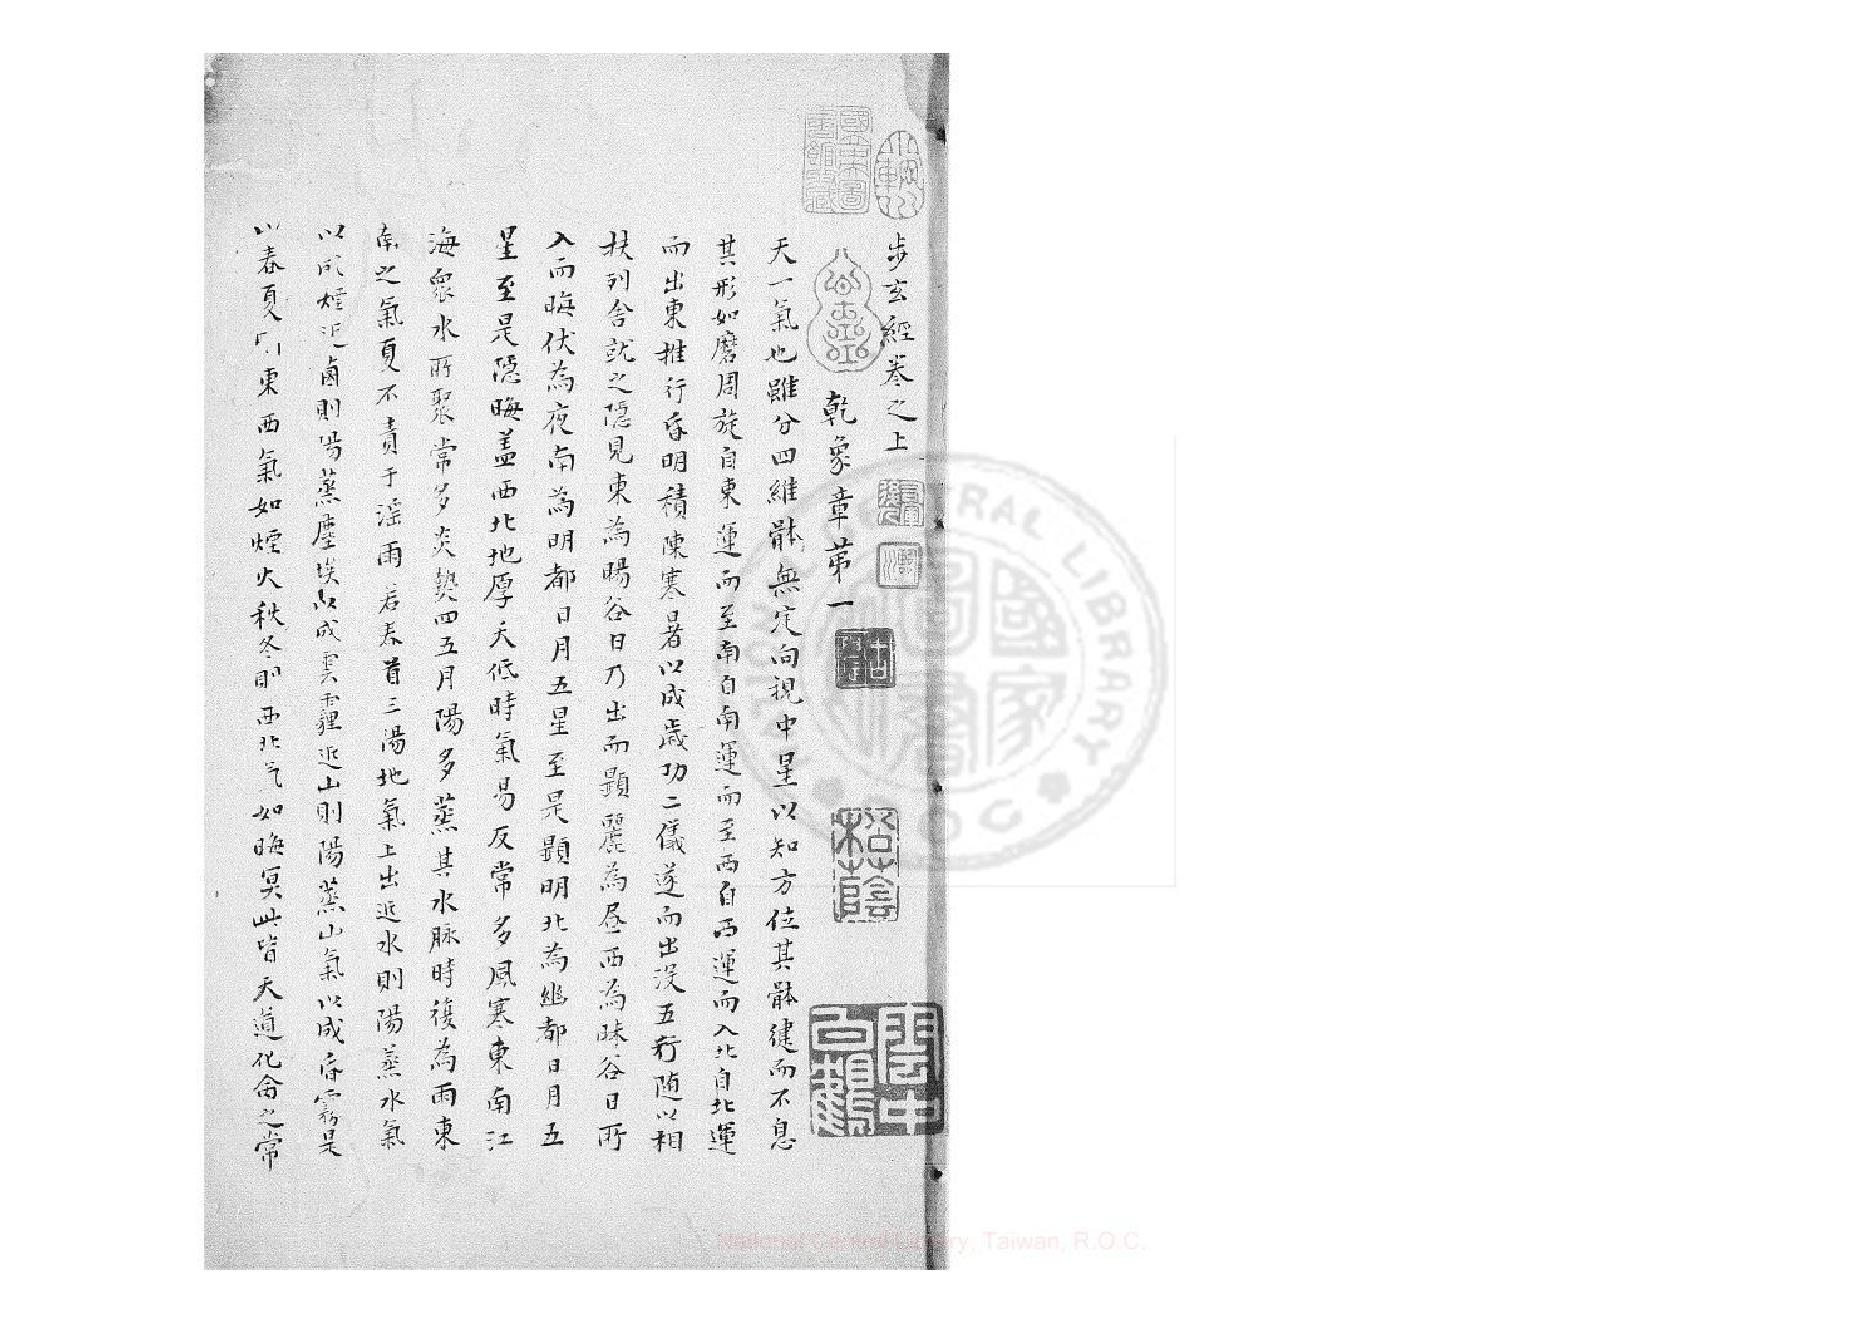 步玄經卷之上
乾象章第一
天一氣也雖分四維骵無定向視中星以知方位其骵健而不息
其形如磨周旋自東運而至南自南運而至西自西運而入北自北運
而出東推行昏明積陳寒暑以成歲功二儀遂而出没五行随以相
扶列舍就之隱見東為暘谷日乃出而顯麗為昼西為昧谷日所
入而晦伏為夜南為明都日月五星至是顯明北為幽都日月五
星至是隱晦盖西北地厚天低時氣易反常多風寒東南江
海衆水所聚常多炎𤍠四五月陽多蒸其水脉時復為雨東
南之氣夏不責于淫雨若春首三陽地氣上出近水則陽蒸水氣
以成煙近鹵則陽蒸塵埃以成雲霾近山則陽蒸山氣以成昏霧是
以春夏則東西氣如煙火秋冬即西北气如晦冥此皆天道化侖之常
國立中央圖書館考藏
雲中
松蔭
NATIONAL CENTRAL LIBRARY
R.O.C.
國家圖書
National Central Library, Taiwan, R.O.C.